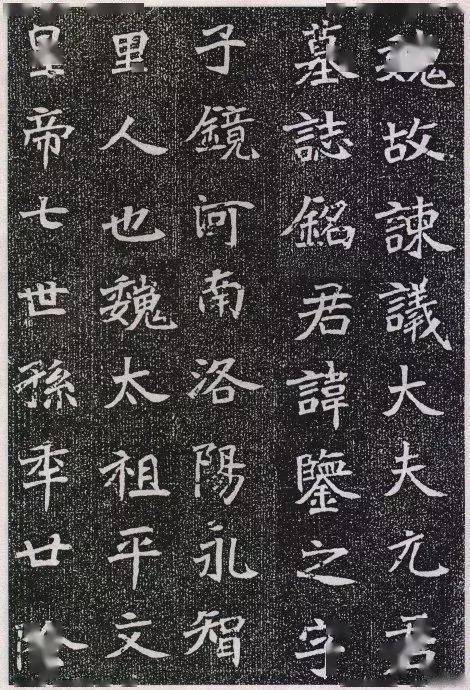 魏故諫議大夫元君
墓誌銘君諱鑒之字
子鏡河南洛陽永智
里人也魏太祖平文
皇帝七世孫年廿